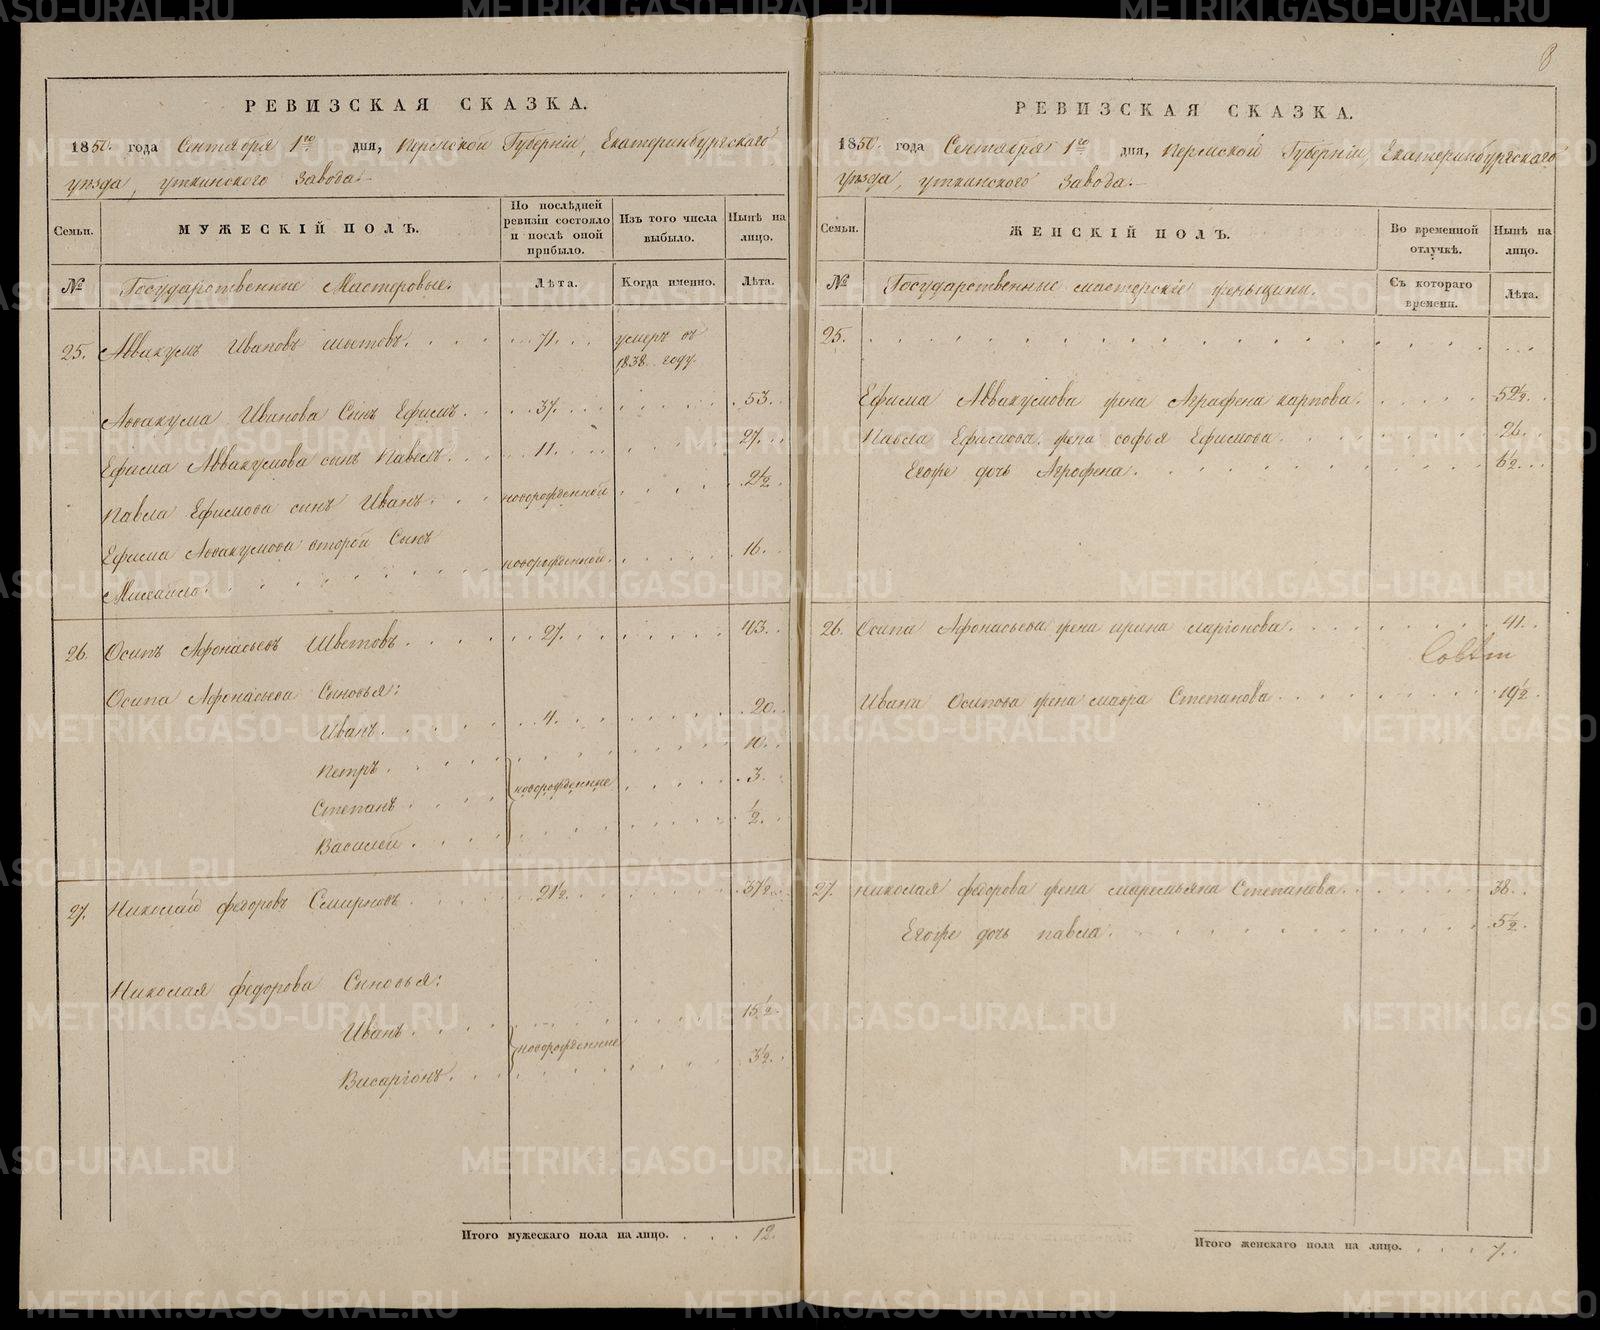 8
РЕВИЗСКАЯ СКАЗКА.
1850. года Сентября 1го дня, Пермской Губернiи, Екатеринбургскаго
уѣзда, уткинского Завода.
Семьи.
МУЖЕСКIЙ ПОЛЪ.
По послѣдней ревизiи состояло и послѣ оной прибыло.
Изъ того числа выбыло.
Нынѣ на лицо.
№
Государственные Мастеровые.
Лѣта.
Когда именно.
Лѣта.
25. Аввакумъ Ивановъ 71. умеръ въ
1838 году.
Аввакума Иванова Сынъ Ефимъ. 37. 53.
Ефима Аввакумова сынъ Павелъ. 11. 27.
Павла Ефимова сынъ Иванъ. новорожденной 2½.
Ефима Аввакумова второй Сынъ
Михайло. новорожденной. 16.
26. Осипъ Афонасьевъ 27. 43.
Осипа Афонасьева Сыновья:
Иванъ. 4. 20.
Петръ. 10.
Степанъ. новорожденные 3.
Василей. ½.
27. Николай федоровъ Смирновъ. 21½. 37½.
Николая федорова Сыновья:
Иванъ. 15½.
новорожденные
Висарiонъ. 3½.
Итого мужескаго пола на лицо. 12.
РЕВИЗСКАЯ СКАЗКА.
1850. года Сентября 1го дня, Пермской Губернiи, Екатеринбургскаго
уѣзда, уткинского Завода.
Семьи.
ЖЕНСКIЙ ПОЛЪ.
Во временной отлучкѣ.
Нынѣ на лицо.
№
Государственные мастерскiе женьщины.
Съ котораго времени.
Лѣта.
25.
Ефима Аввакумова жена Аграфена карпова. 52½.
Павла Ефимова жена софья Ефимова. 26.
Егоже дочь Агрофена. 6½.
26. Осипа Афонасьева жена ирина ларiонова. 41.
Ивана Осипова жена мавра Степанова. 19½.
27. Николая федорова жена маремьяна Степанова. 38.
Егоже дочь павла. 5½.
Итого женскаго пола на лицо. 7.
METRIKI.GASO-URAL.RU